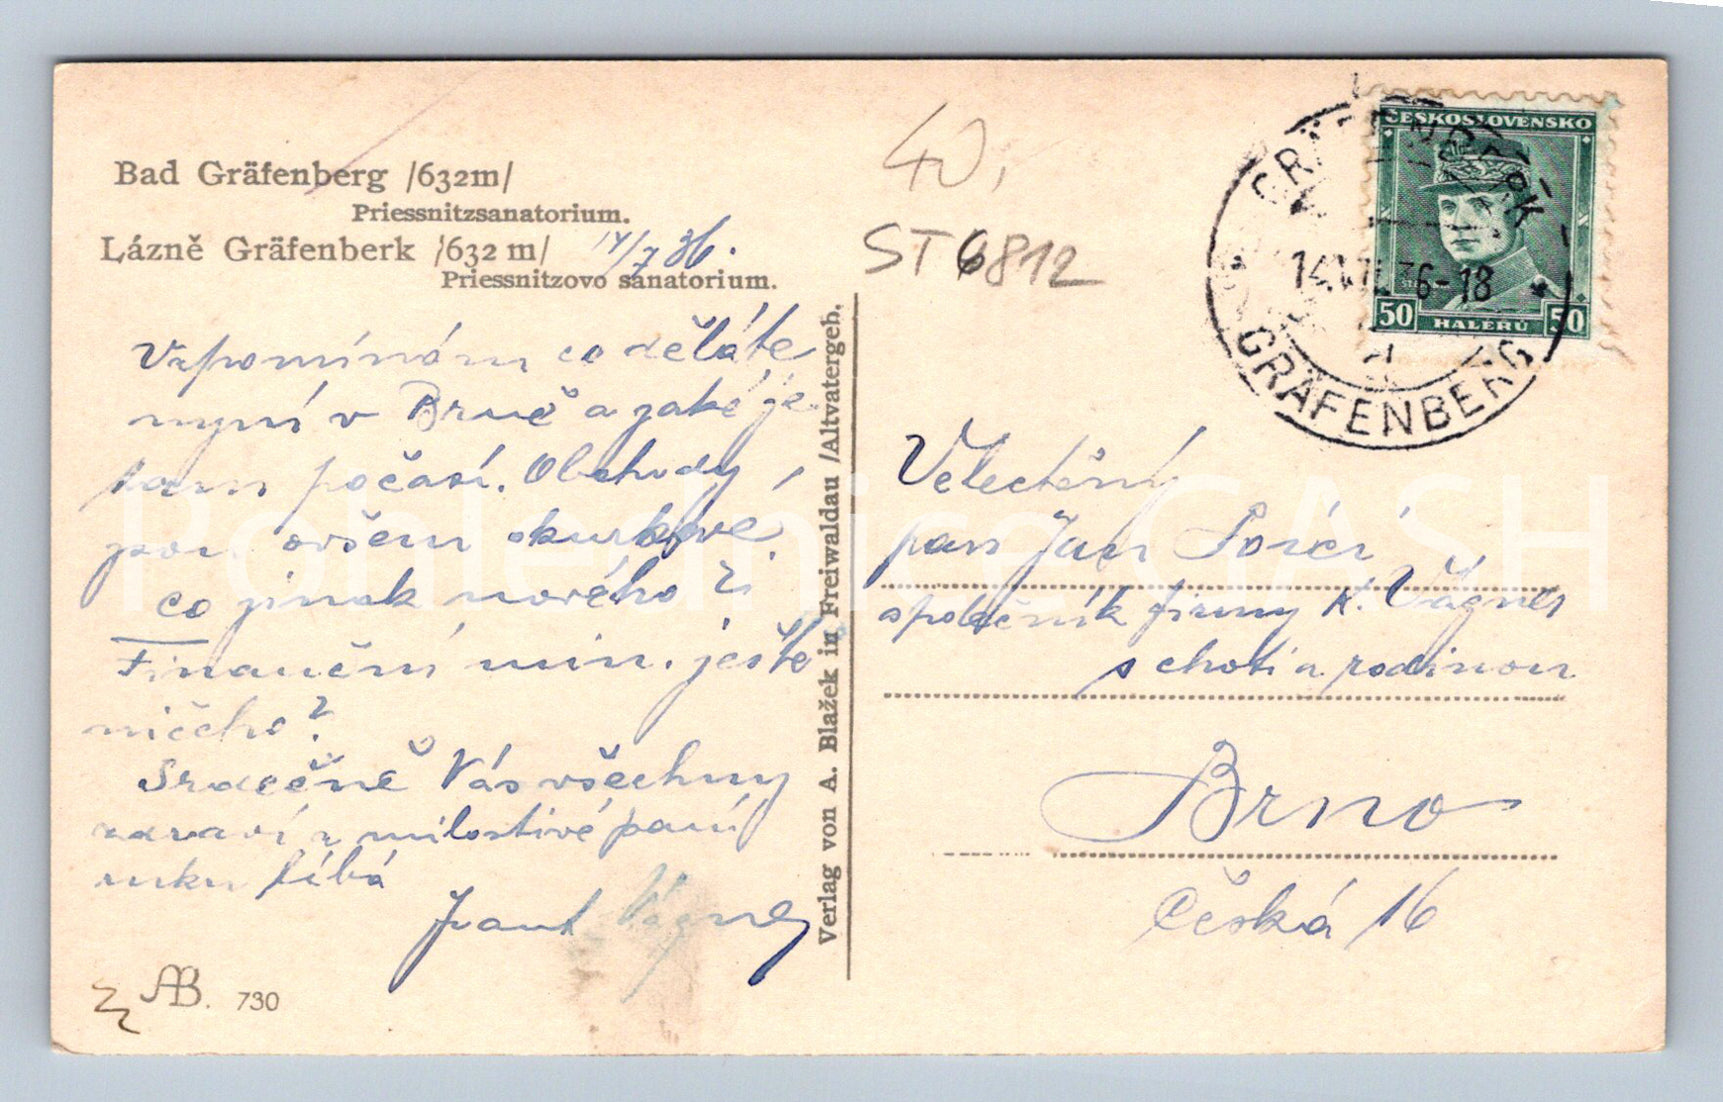 Bad Gräfenberg /632m/
Priessnitzsanatorium.
Lázně Gräfenberk /632 m/ 14/7 36.
Priessnitzovo sanatorium.
Vzpomínám co děláte
nyní v Brně a jaké je
tam počasí. Obchody,
jsou ovšem
co jinak nového?
Finanční min. ještě
ničeho?
Srdečně Vás všechny
zdraví a milostivé paní
ruku líbá
Frant Vágner
AB. 730
Verlag von A. Blažek in Freiwaldau /Altvatergeb.
40,
ST 6812
ČESKOSLOVENSKO
50 HALÉŘŮ 50
GRÄFENBERK
14.VII.36-18
GRÄFENBERG
Velectěný
pan Jan
společník firmy K. Vágner
s chotí a rodinou
Brno
Česká 16
PohledniceGASH